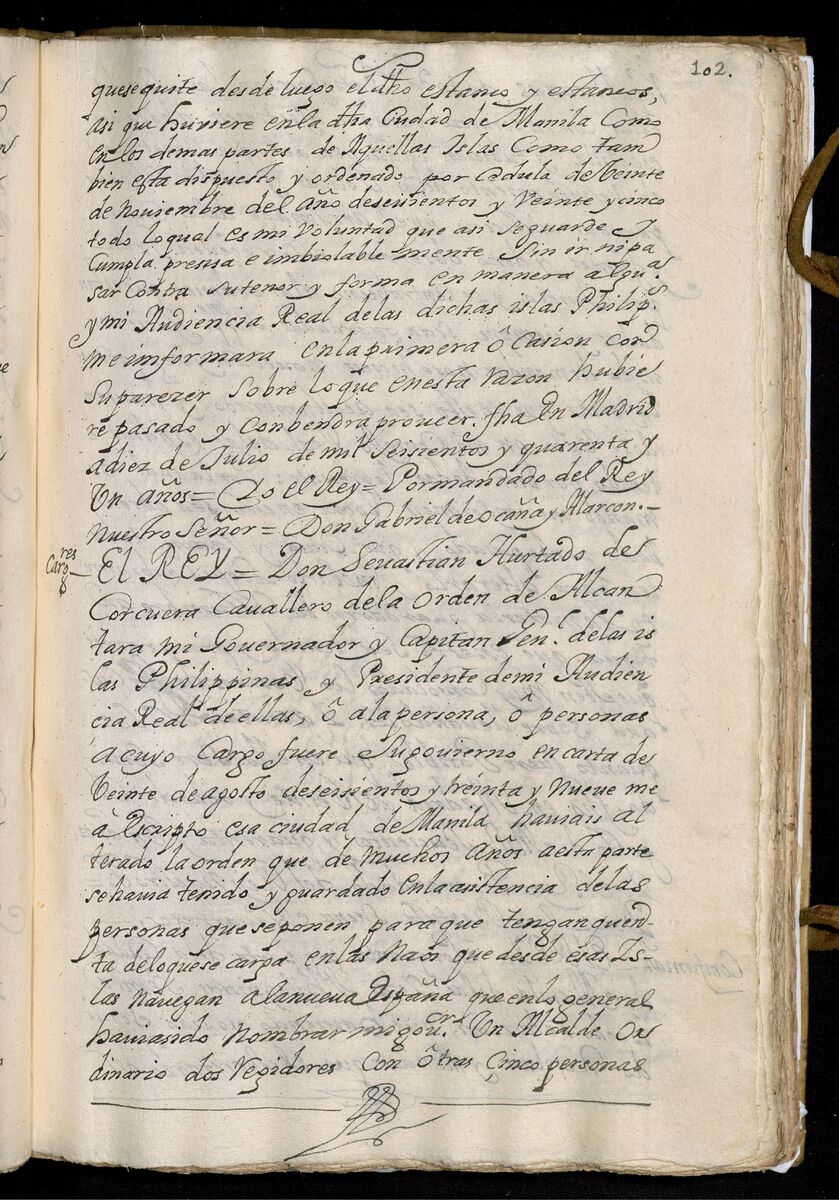 102.
quesequite desde luego el dho estanco y estancos,
asi que huviere en la dha Ciudad de Manila Como
en los demas partes de Aquellas Islas Como tam
bien esta dispuesto y ordenado por Cedula de Veinte
de Noviembre del Año deseisientos y Veinte y cinco
todo loqual es mi Voluntad que asi seguarde y
Cumpla presisa e imbiolable mente Sin ir nipa
sar Contra sutenor y forma en manera algua.
y mi Audiencia Real delas dichas islas Philips.
me imformara enlaprimera ôcasion con
Suparezer Sobre loque enesta razon hubie
re pasado y Conbendra proueer. fha En Madrid
adiez de Julio de mil Seisientos y quarenta y
Un años = Yo el Rey = Pormandado del Rey
Nuestro Señor = Don Gabriel de ocaña y Alarcon. –
Cargores
8
– El REY = Don Sevastian Hurtado de
Corcuera Cavallero dela Orden de Alcan
tara mi Governador y Capitan Gen.l delas is
las Philippinas y Presidente demi Audien
cia Real deellas, ô ala persona, ô personas
acuyo Cargo fuere Sugovierno en carta de
Veinte de agosto deseisientos y treinta y Nueve me
â Escripto esa ciudad de Manila haviais al
terado la orden que de muchos Años aesta parte
sehavia tenido y guardado En la asistencia delas
personas queseponen paraque tengan quen-
ta deloquese carga enlas Naos que desde esas Is-
las Navegan alanueva España que enlo general
haviasido Nombrar migour.or Un Alcalde Or
dinario dos Regidores Con ôtras Çinco personas